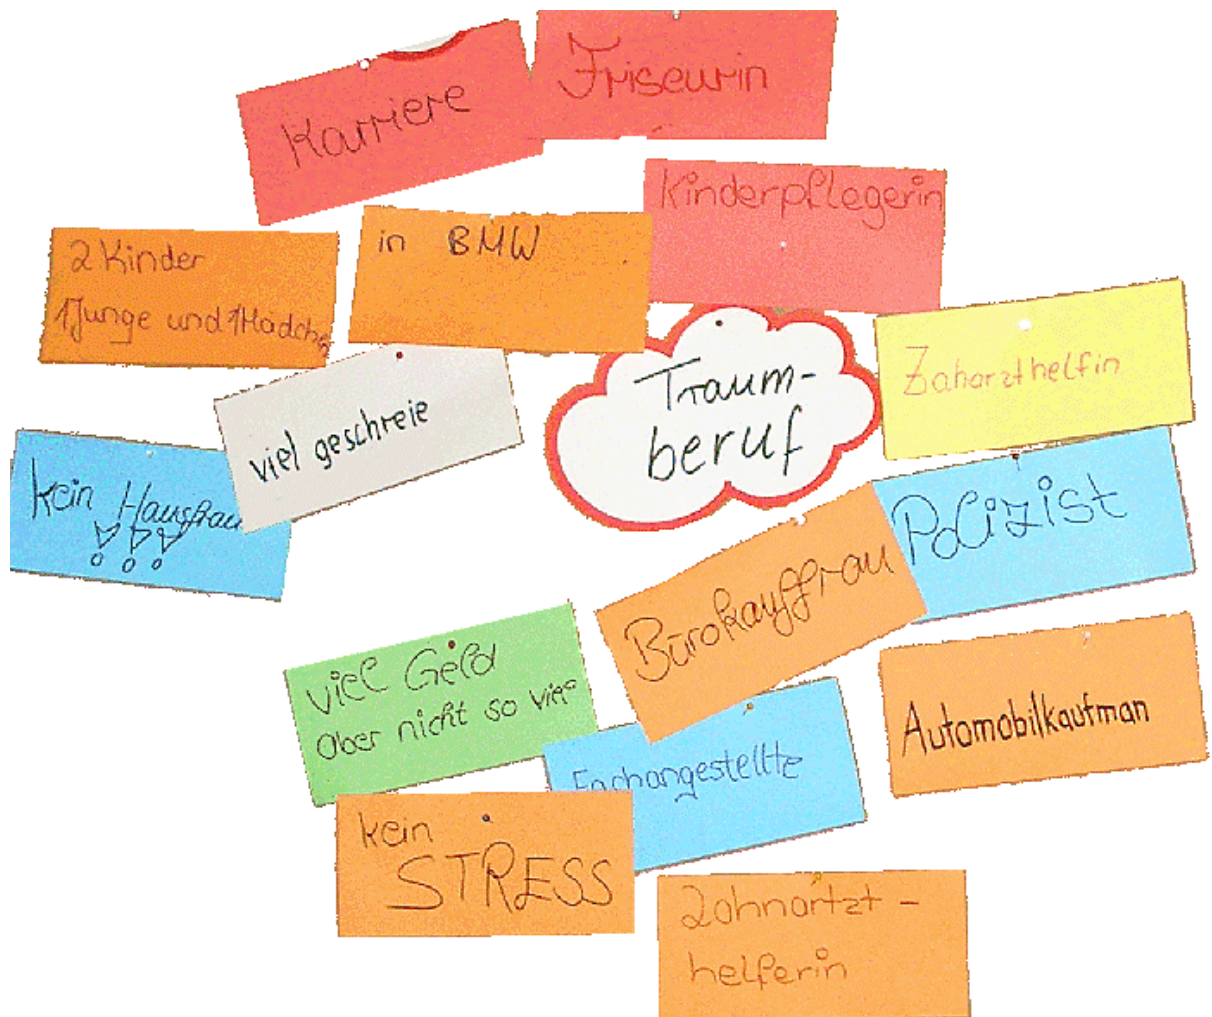 Karriere
Friseurin
Kinderpflegerin
2 Kinder
1 Junge und 1 Mädchen
in BMW
Traum-
beruf
Zaharzthelfin
viel geschreie
kein Hausfrau
!!!
Polizist
Bürokauffrau
viel Geld
aber nicht so viel
Automobilkaufman
Fachangestellte
kein
STRESS
Zahnartzt-
helferin